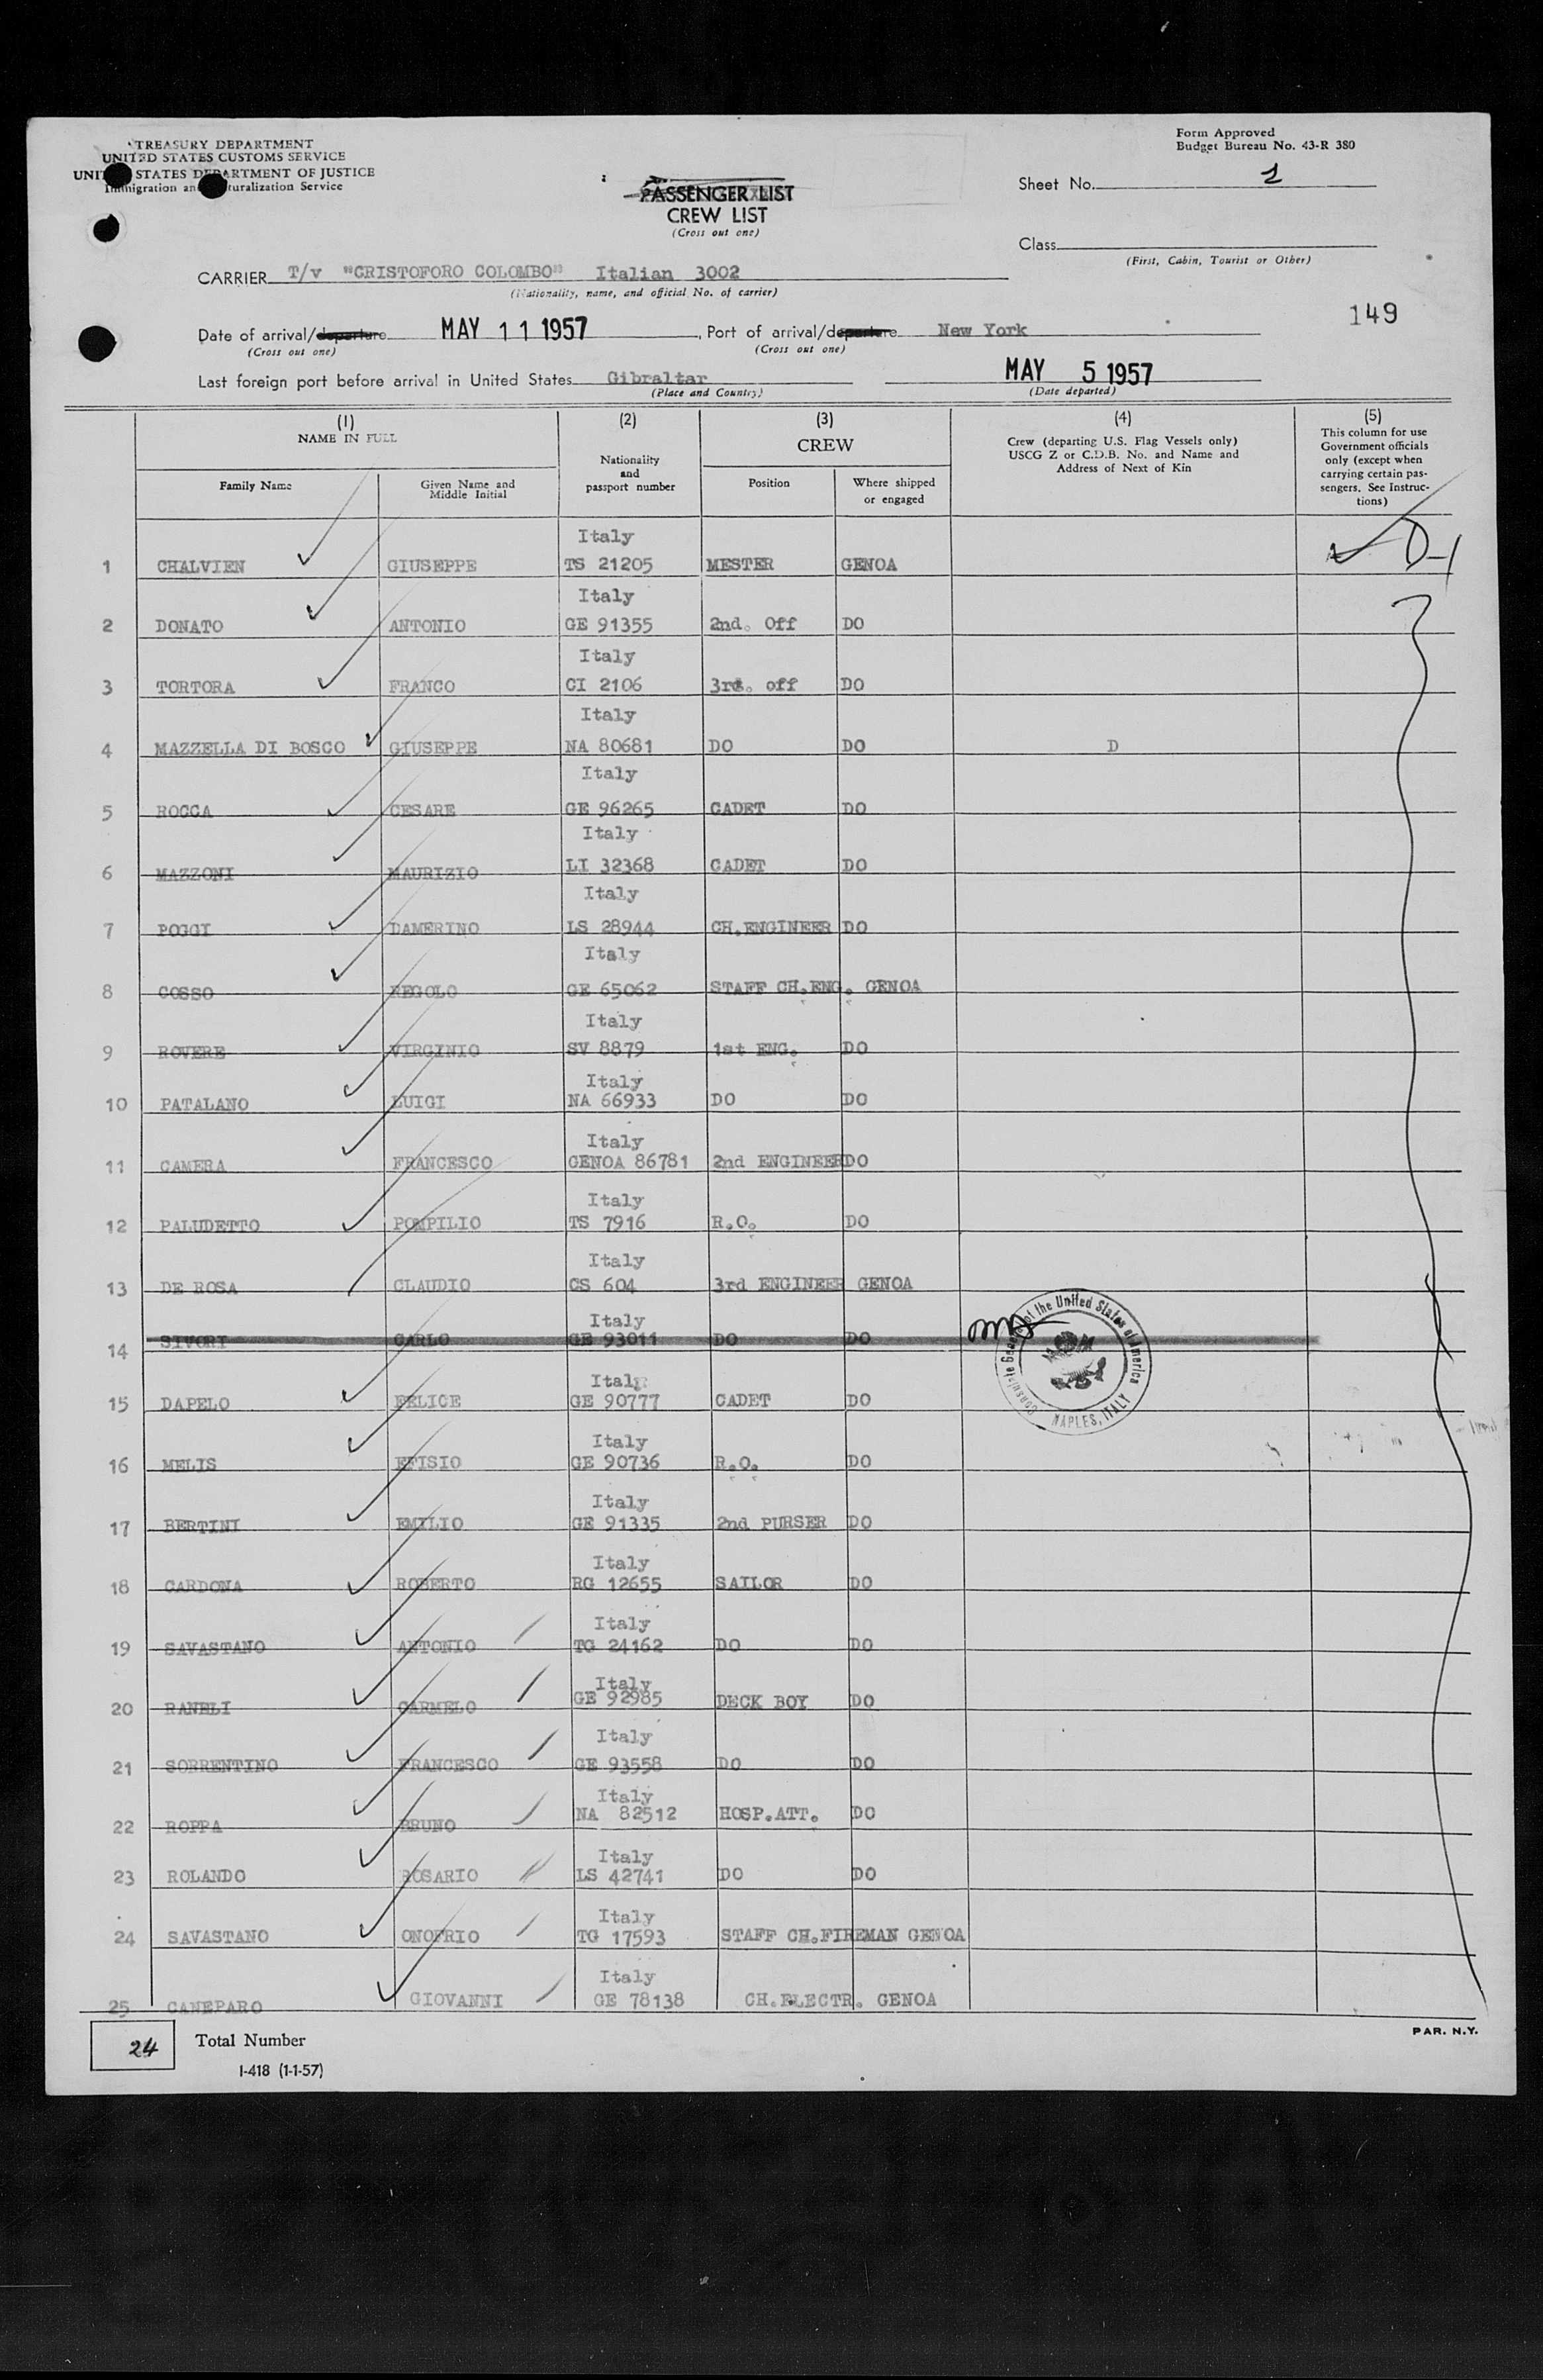 TREASURY DEPARTMENT
UNITED STATES CUSTOMS SERVICE
UNITED STATES DEPARTMENT OF JUSTICE
Immigration and Naturalization Service
Form Approved
Budget Bureau No. 43-R 380
PASSENGER LIST
CREW LIST
(Cross out one)
Sheet No. 1
Class
(First, Cabin, Tourist or Other)
CARRIER T/v "CRISTOFORO COLOMBO" Italian 3002
(Nationality, name, and official No. of carrier)
149
Date of arrival/departure MAY 11 1957, Port of arrival/departure New York
(Cross out one) (Cross out one)
Last foreign port before arrival in United States Gibraltar MAY 5 1957
(Place and Country) (Date departed)
(1) NAME IN FULL
Family Name
Given Name and Middle Initial
(2) Nationality and passport number
(3) CREW
Position
Where shipped or engaged
(4) Crew (departing U.S. Flag Vessels only) USCG Z or C.D.B. No. and Name and Address of Next of Kin
(5) This column for use Government officials only (except when carrying certain passengers. See Instructions)
1 CHALVIEN GIUSEPPE Italy TS 21205 MESTER GENOA D-1
2 DONATO ANTONIO Italy GE 91355 2nd. Off DO
3 TORTORA FRANCO Italy CI 2106 3rd. off DO
4 MAZZELLA DI BOSCO GIUSEPPE Italy NA 80681 DO DO D
5 ROCCA CESARE Italy GE 96265 CADET DO
6 MAZZONI MAURIZIO Italy LI 32368 CADET DO
7 POGGI DAMERINO Italy LS 28944 CH.ENGINEER DO
8 COSSO REGOLO Italy GE 65062 STAFF CH.ENG. GENOA
9 ROVERE VIRGINIO Italy SV 8879 1st ENG. DO
10 PATALANO LUIGI Italy NA 66933 DO DO
11 CAMERA FRANCESCO Italy GENOA 86781 2nd ENGINEER DO
12 PALUDETTO POMPILIO Italy TS 7916 R.O. DO
13 DE ROSA CLAUDIO Italy CS 604 3rd ENGINEER GENOA
14 SIVORI CARLO Italy GE 93011 DO DO
Consulate General of the United States of America NAPLES, ITALY
15 DAPELO FELICE Italy GE 90777 CADET DO
16 MELIS EFISIO Italy GE 90736 R.O. DO
17 BERTINI EMILIO Italy GE 91335 2nd PURSER DO
18 CARDONA ROBERTO Italy RG 12655 SAILOR DO
19 SAVASTANO ANTONIO Italy TG 24162 DO DO
20 RANELI CARMELO Italy GE 92985 DECK BOY DO
21 SORRENTINO FRANCESCO Italy GE 93558 DO DO
22 ROPPA BRUNO Italy NA 82512 HOSP.ATT. DO
23 ROLANDO ROSARIO Italy LS 42741 DO DO
24 SAVASTANO ONOFRIO Italy TG 17593 STAFF CH.FIREMAN GENOA
25 CANEPARO GIOVANNI Italy GE 78138 CH.ELECTR. GENOA
24 Total Number
I-418 (1-1-57)
PAR. N.Y.